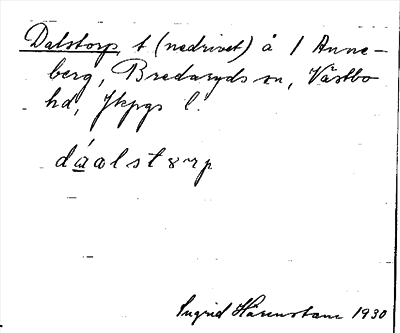 Dalstorp t (nedrivet) å 1 Anne-
berg, Bredaryds sn, Västbo
hd, Jkpgs l.
dáalstorp
Ingrid Härenstam 1930